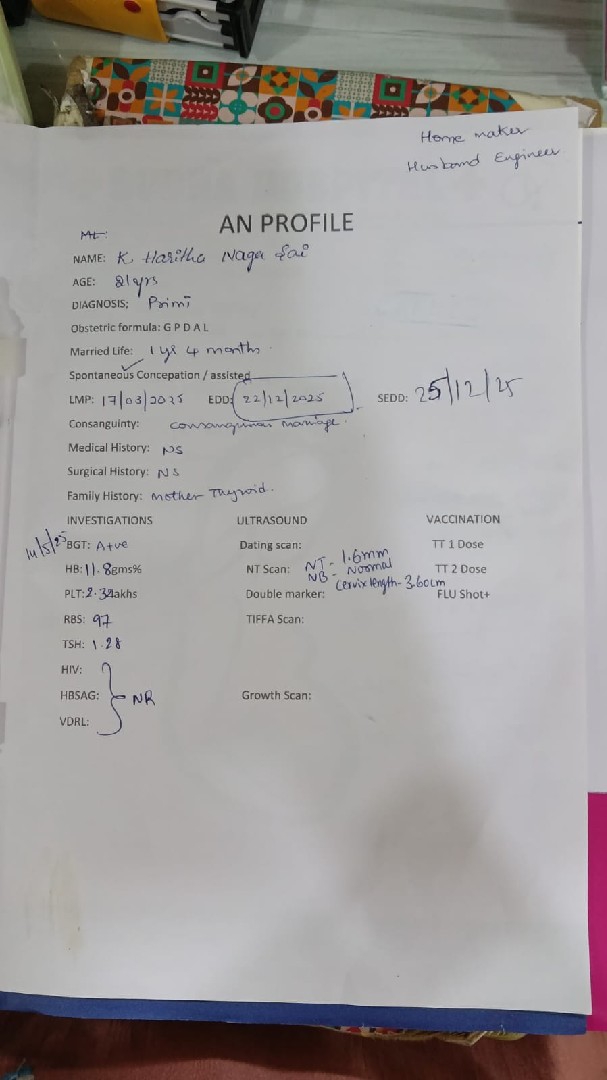 Home maker
Husband Engineer
AN PROFILE
NAME: K Haritha Naga Sai
AGE: 21yrs
DIAGNOSIS: Primi
Obstetric formula: G P D A L
Married Life: 1 yr 4 months
Spontaneous Concepation / assisted
LMP: 17/03/2025 EDD: 22/12/2025 SEDD: 25/12/25
Consanguinty: consanguinous marriage.
Medical History: NS
Surgical History: NS
Family History: Mother Thyroid.
INVESTIGATIONS ULTRASOUND VACCINATION
14/5/25 BGT: A+ve Dating scan: TT 1 Dose
HB: 11.8gms% NT Scan: NT - 1.6mm TT 2 Dose
NB - Normal
PLT: 2.32lakhs Double marker: Cervix length - 3.60cm FLU Shot+
RBS: 97 TIFFA Scan:
TSH: 1.28
HIV:
HBSAG: NR Growth Scan:
VDRL: